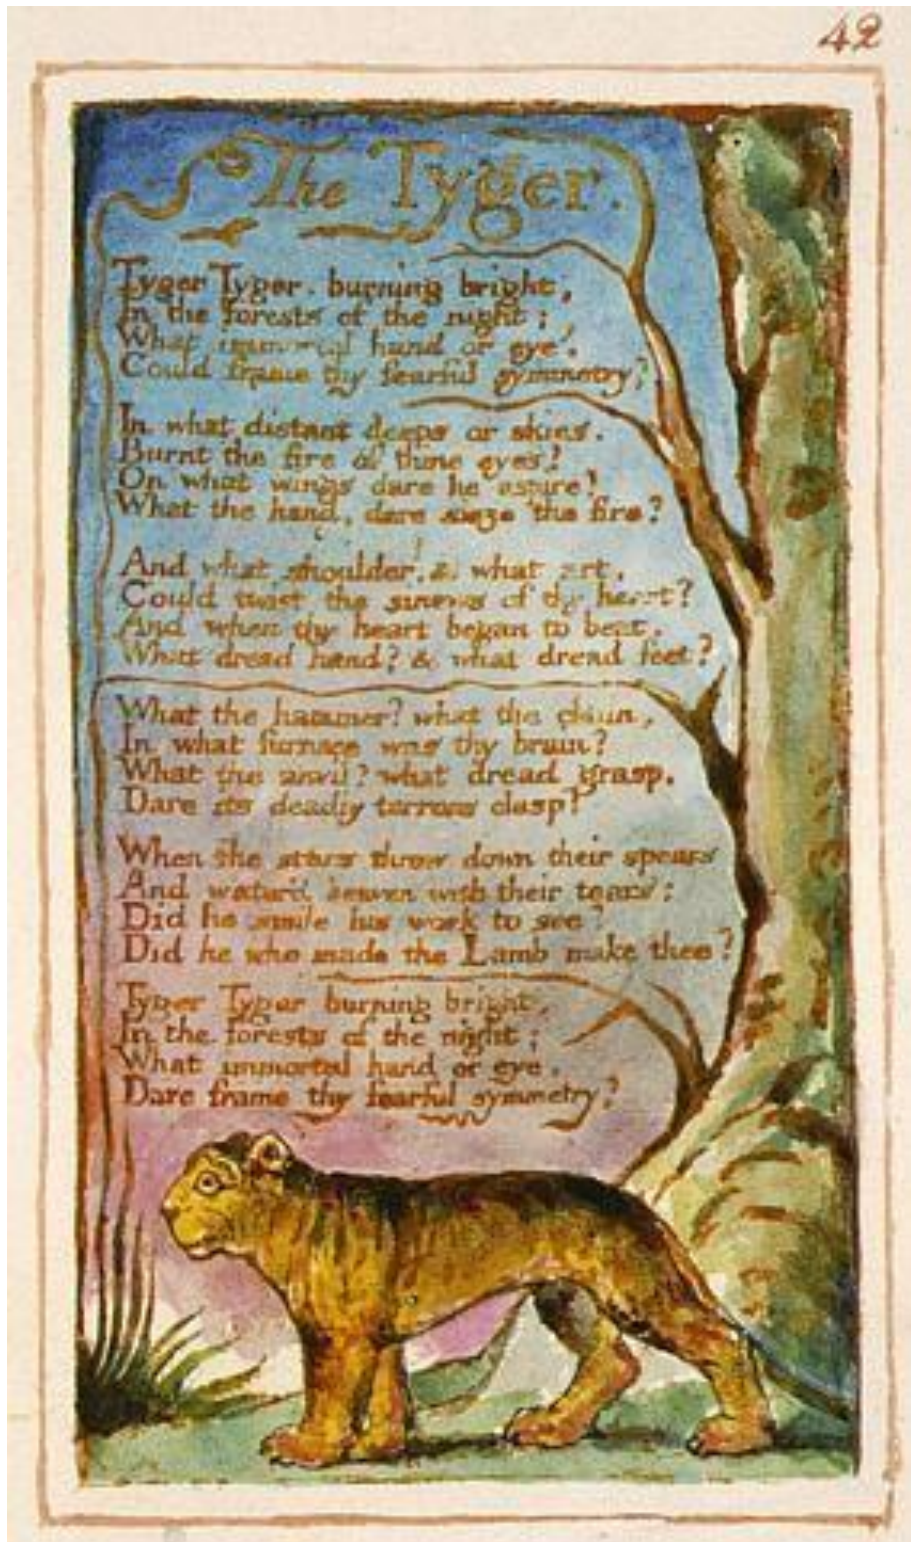 42
The Tyger.
Tyger Tyger. burning bright,
In the forests of the night;
What immortal hand or eye,
Could frame thy fearful symmetry?
In what distant deeps or skies.
Burnt the fire of thine eyes?
On what wings dare he aspire?
What the hand, dare sieze the fire?
And what shoulder, & what art,
Could twist the sinews of thy heart?
And when thy heart began to beat,
What dread hand? & what dread feet?
What the hammer? what the chain,
In what furnace was thy brain?
What the anvil? what dread grasp,
Dare its deadly terrors clasp?
When the stars threw down their spears
And water'd heaven with their tears:
Did he smile his work to see?
Did he who made the Lamb make thee?
Tyger Tyger burning bright,
In the forests of the night;
What immortal hand or eye,
Dare frame thy fearful symmetry?